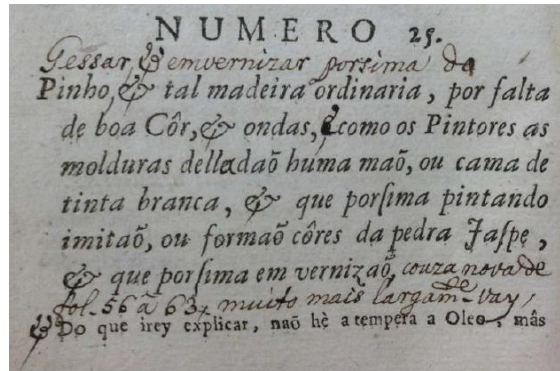 NUMERO 25.
Gessar, & emvernizar porsima do
Pinho, & tal madeira ordinaria, por falta
de boa Côr, & ondas, & como os Pintores as
molduras delle daõ huma maõ, ou cama de
tinta branca, & que porſima pintando
imitaõ, ou formaõ côres da pedra Jaſpe,
& que porſima em vernizaõ, couza nova de
fol. 56 a 63, muito mais largamde vay,
& Do que irey explicar, naõ hè a tempera a Oleo, mâs